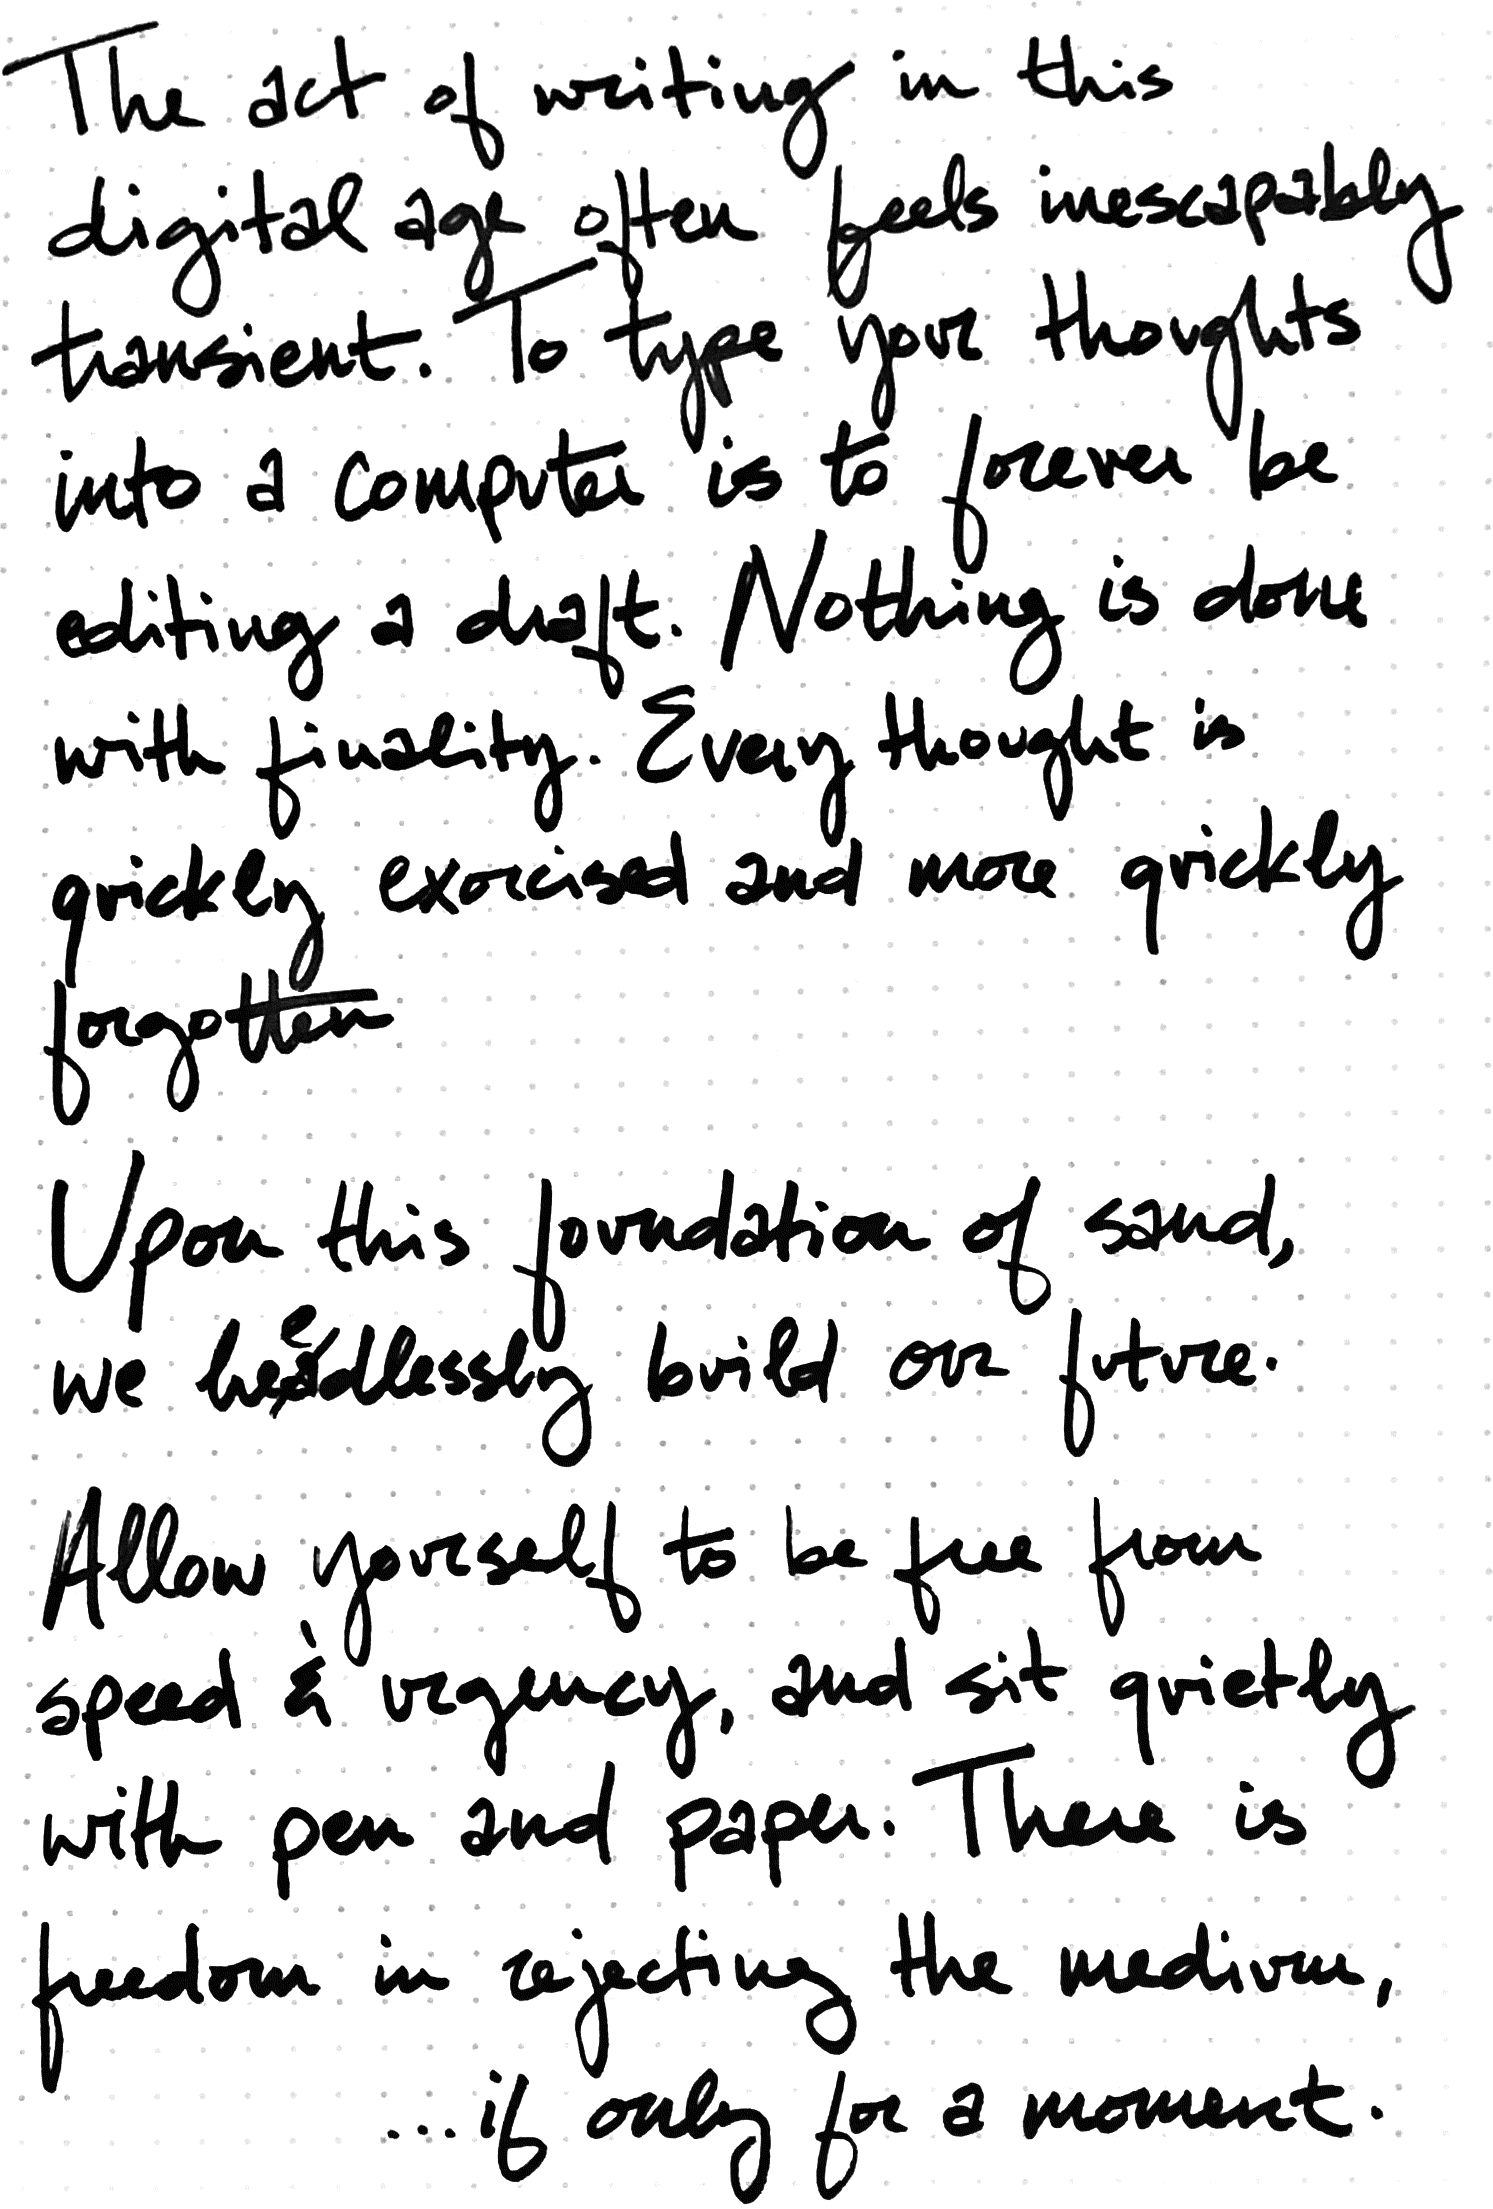 The act of writing in this
digital age often feels inescapably
transient. To type your thoughts
into a computer is to forever be
editing a draft. Nothing is done
with finality. Every thought is
quickly exorcised and more quickly
forgotten
Upon this foundation of sand,
we heedlessly build our future.
Allow yourself to be free from
speed & urgency, and sit quietly
with pen and paper. There is
freedom in rejecting the medium,
...if only for a moment.